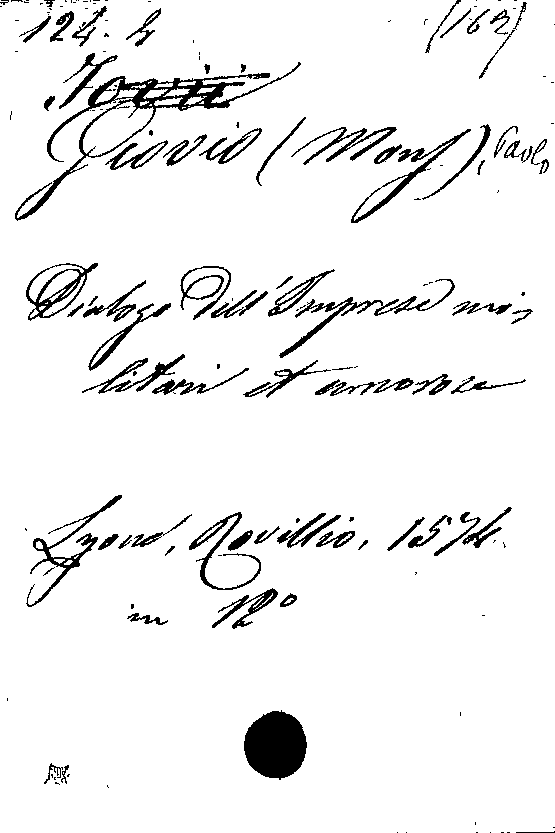 124. 2 (163)
Jovii
Giovio (Mons), Paolo
Dialogo dell'Imprese mi-
litari et amorose
Lyone, Rovillio, 1574.
in 12°